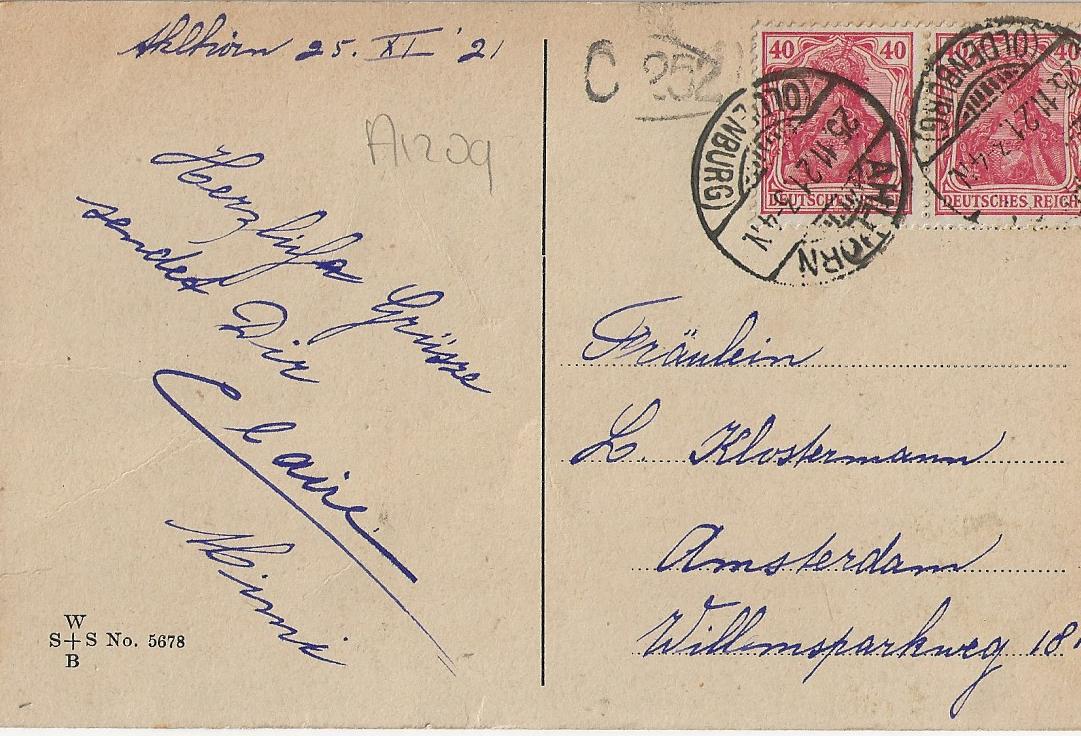 Ahlhorn 25. XI. '21
A1209
Herzliche Grüsse
sendet Dir
Claire
Mimi
W
S+S No. 5678
B
C 252
40 40
DEUTSCHES REICH
40 40
DEUTSCHES REICH
AHLHORN
(OLDENBURG)
25.11.21. 3-4.N
(OLDENBURG)
25.11.21. 3-4.N
Fräulein
L. Klostermann
Amsterdam
Willemsparkweg